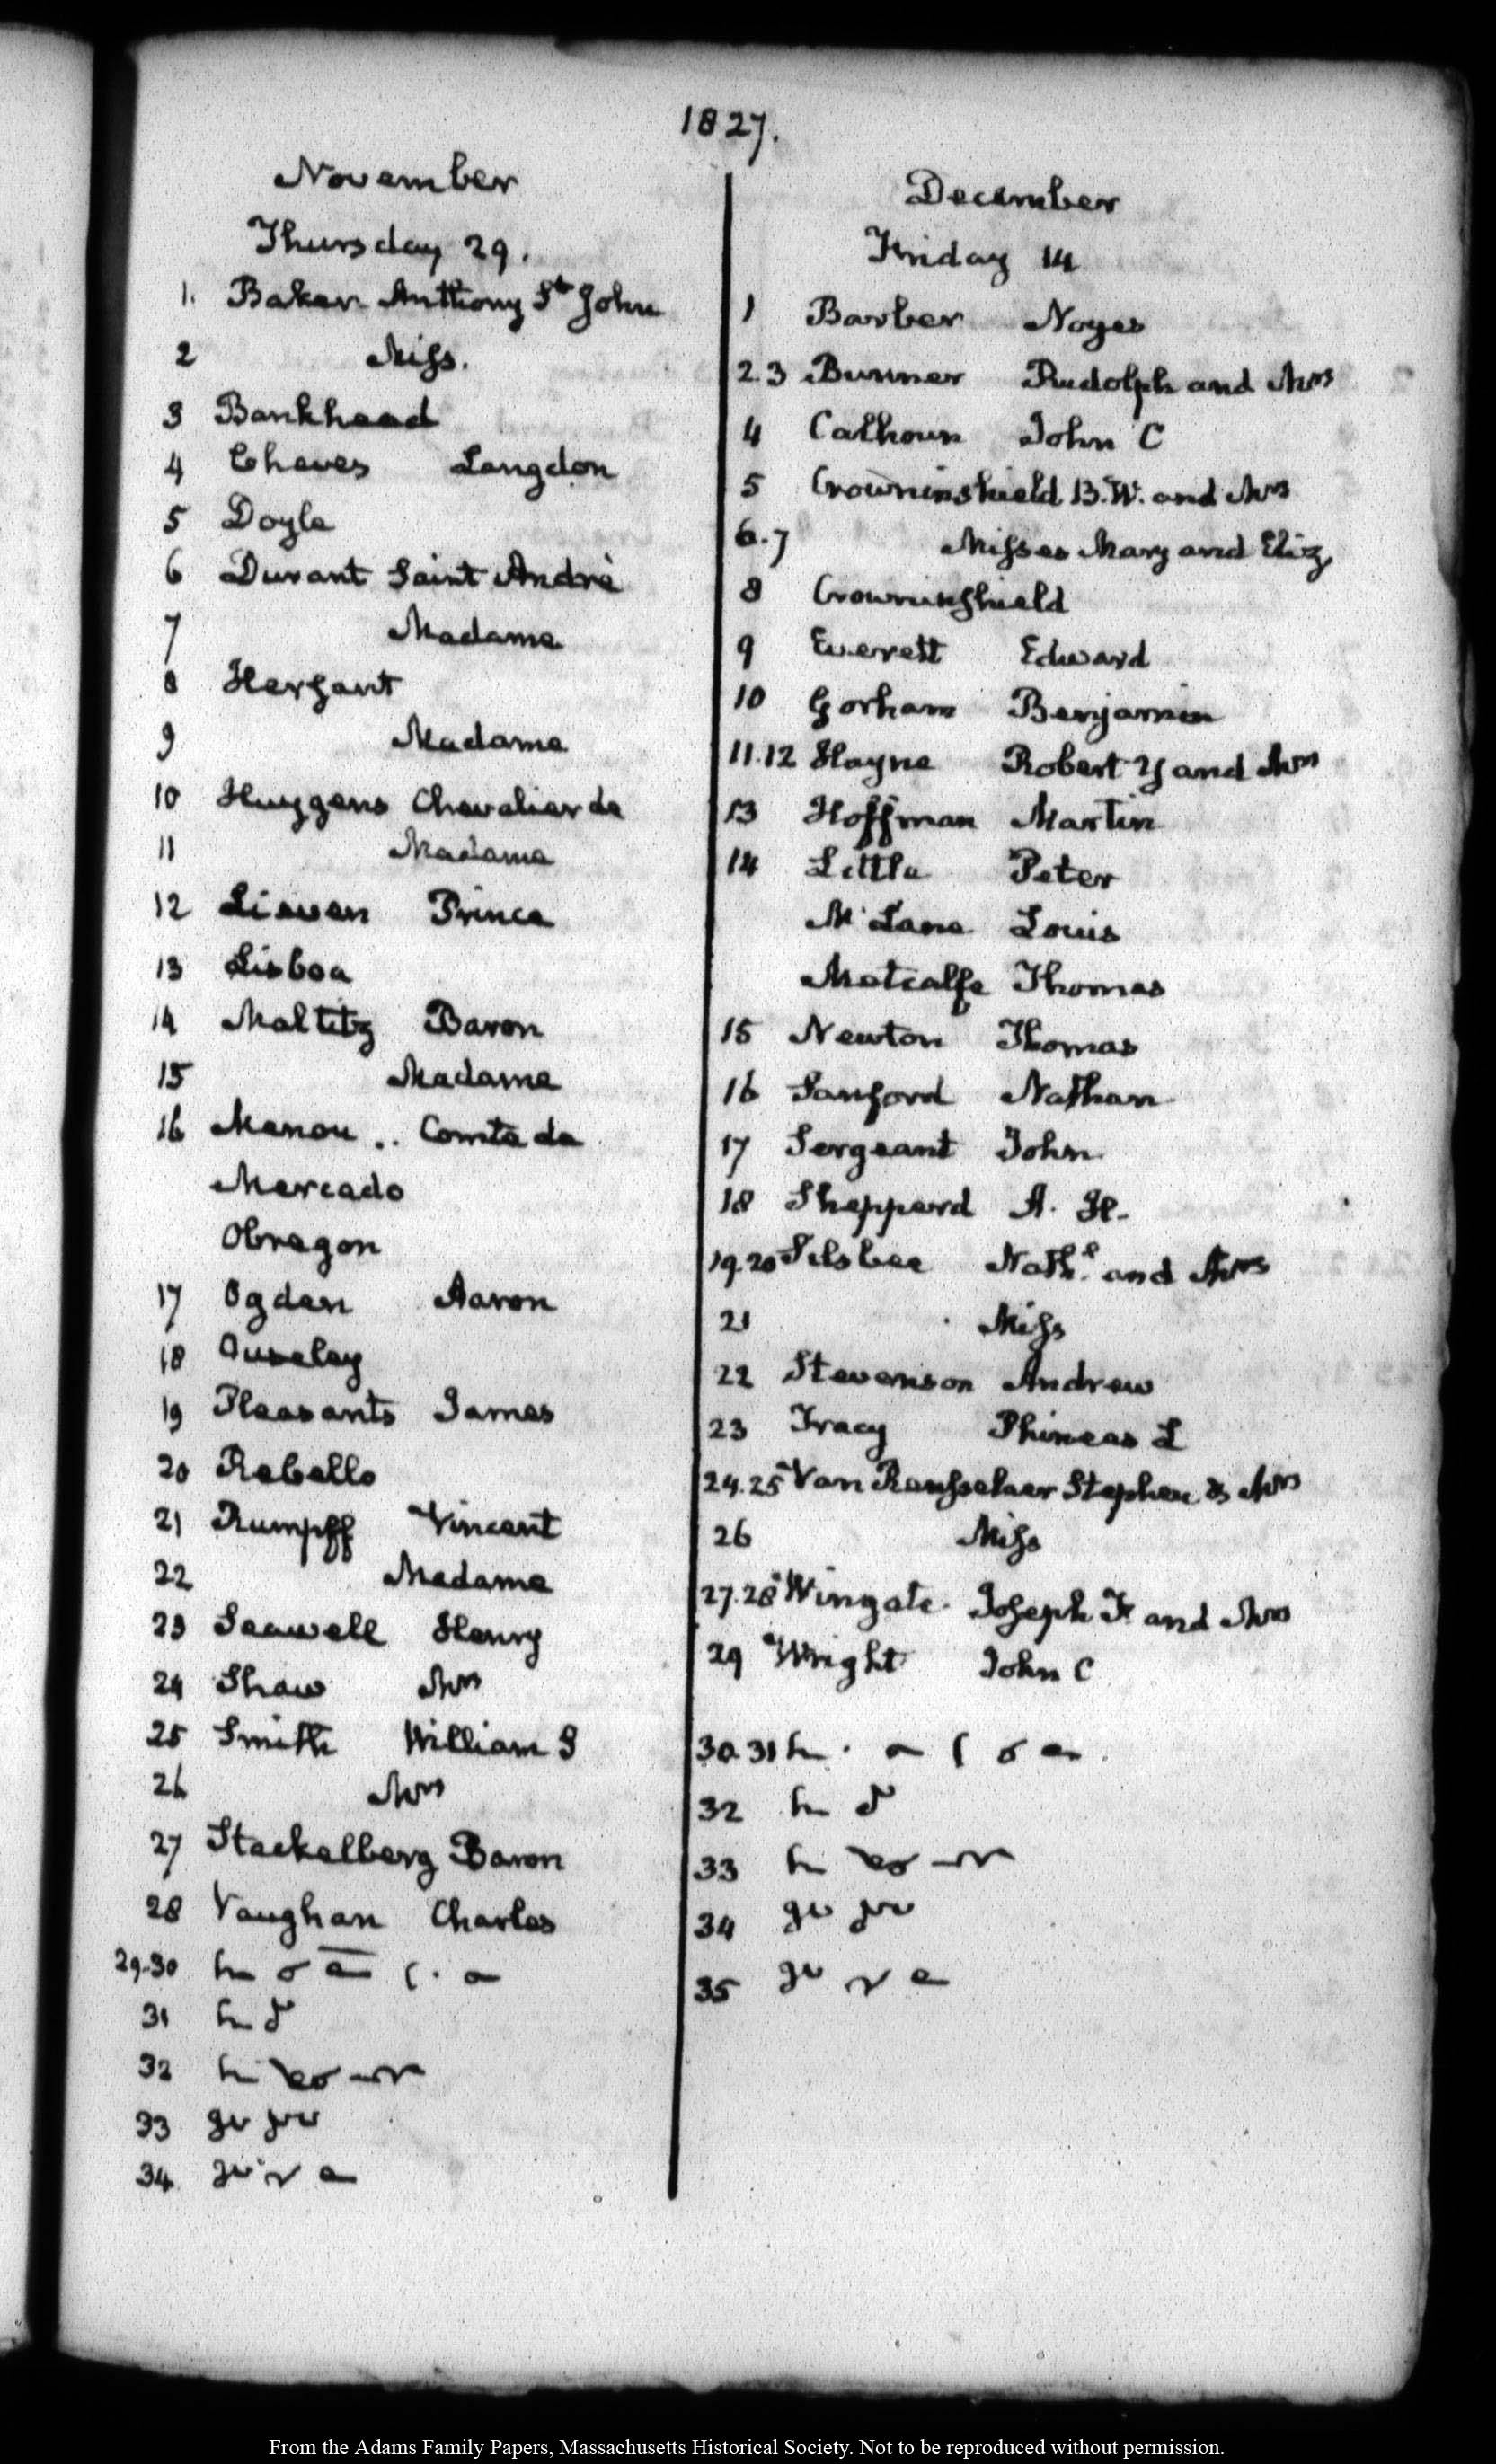 1827.
November
Thursday 29.
1. Baker Anthony St John
2 Miss.
3 Bankhead
4 Cheves Langdon
5 Doyle
6 Durant Saint André
7 Madame
8 Hersant
9 Madame
10 Huygens Chevalier de
11 Madame
12 Lieven Prince
13 Lisboa
14 Maltitz Baron
15 Madame
16 Menou .. Comte de
Mercado
Obregon
17 Ogden Aaron
18 Ouseley
19 Pleasants James
20 Rebello
21 Rumpff Vincent
22 Madame
23 Seawell Henry
24 Shaw Mrs
25 Smith William S
26 Mrs
27 Stackelberg Baron
28 Vaughan Charles
29.30
31
32
33
34
December
Friday 14
1 Barber Noyes
2.3 Bunner Rudolph and Mrs
4 Calhoun John C
5 Crowninshield B.W. and Mrs
6.7 Misses Mary and Eliz
8 Crowninshield
9 Everett Edward
10 Gorham Benjamin
11.12 Hayne Robert Y and Mrs
13 Hoffman Martin
14 Little Peter
McLane Louis
Metcalfe Thomas
15 Newton Thomas
16 Sanford Nathan
17 Sergeant John
18 Shepperd A. H.
19.20 Silsbee Nathl. and Mrs
21 Miss
22 Stevenson Andrew
23 Tracy Phineas L
24.25 Van Rensselaer Stephen & Mrs
26 Miss
27.28 Wingate Joseph F and Mrs
29 Wright John C
30.31
32
33
34
35
From the Adams Family Papers, Massachusetts Historical Society. Not to be reproduced without permission.